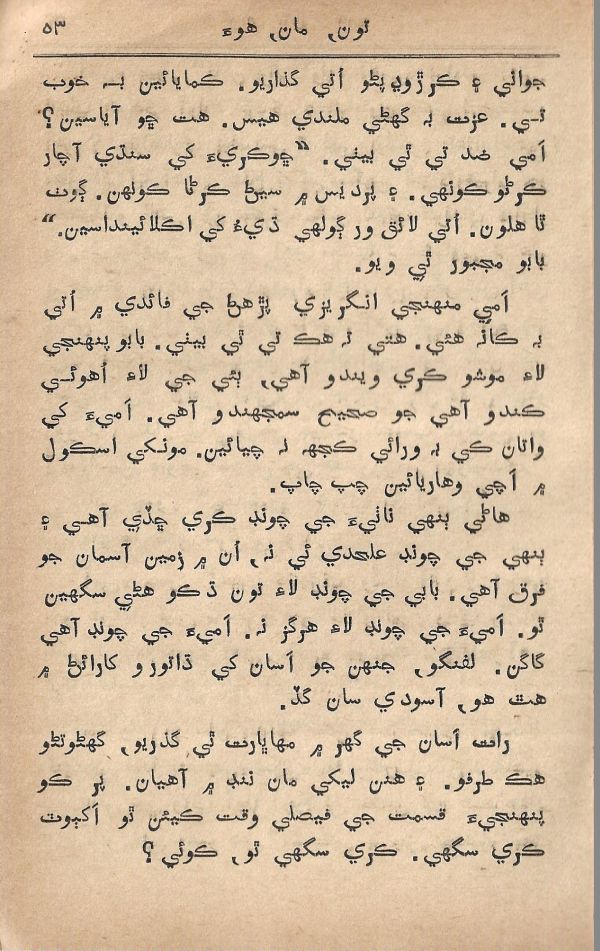 تون, مان, هوءَ ٥٣
جوائي ۽ ڪرڙوڍپڻو اُتي گذاريو. ڪمايائين بہ خوب
ٿي. عزت بہ گهڻي ملندي هيس. هت ڇو آياسين؟
اَمي ضد تي ٿي بيٺي. “ڇوڪريءَ کي سنڌي آچار
ڪرڻو ڪونهي. ۽ پرديس ۾ سيڻ ڪرڻا ڪونهن. ڳوٺ
ٿا هلون. اُتي لائق ور ڳولهي ڌيءُ کي اڪلائينداسين.“
بابو مجبور ٿي ويو.
اَمي منهنجي انگريزي پڙهڻ جي فائدي ۾ اُتي
بہ ڪانہ هئي. هتي تہ هڪ ٽي ٿي بيٺي. بابو پنهنجي
لاءِ موشو ڪري ويندو آهي, ٻئي جي لاءِ اُهوئي
ڪندو آهي جو صحيح سمجهندو آهي. اَميءَ کي
واتان کي بہ ورائي ڪجهہ نہ چيائين. مونکي اسڪول
۾ اَچي وهاريائين چپ چاپ.
هاڻي ٻنهي ناٺيءَ جي چونڊ ڪري ڇڏي آهي ۽
ٻنهي جي چونڊ علحدي ئي نہ, اُن ۾ زمين آسمان جو
فرق آهي. بابي جي چونڊ لاءِ تون ڌڪو هڻي سگهين
ٿو. اَميءَ جي چونڊ لاءِ هرگز نہ. اَميءَ جي چونڊ آهي
گاگن. لفنگو, جنهن جو اَسان کي ڌاتورو کارائڻ ۾
هٿ هو, آسودي سان گڏ.
رات اَسان جي گهر ۾ مهاڀارت ٿي گذريو, گهڻوتڻو
هڪ طرفو. ۽ هنن ليکي مان ننڊ ۾ آهيان. پر ڪو
پنهنجيءَ قسمت جي فيصلي وقت ڪيئن ٿو اَکٻوٽ
ڪري سگهي. ڪري سگهي ٿو, ڪوئي؟